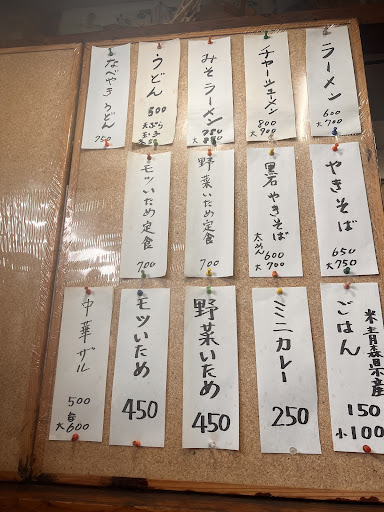 ラーメン
600
大 700
チャーシューメン
800
大 900
みそラーメン
750
大 850
うどん
500
天ぷら
なべやきうどん
750
やきそば
650
大 750
黒石やきそば
太めん
600
大 700
野菜いため定食
700
モツいため定食
700
ごはん
米青森県産
150
小100
ミニカレー
250
野菜いため
450
モツいため
450
中華ザル
500
大 600